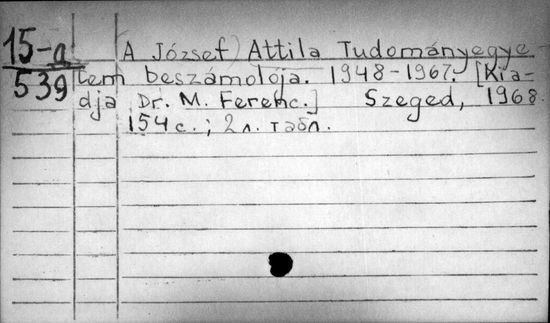 15-a
539
A József) Attila Tudományegye-
tem beszámolója. 1948-1967. [Kia-
dja Dr. M. Ferenc.] Szeged, 1968.
154 с.; 2 л. табл.